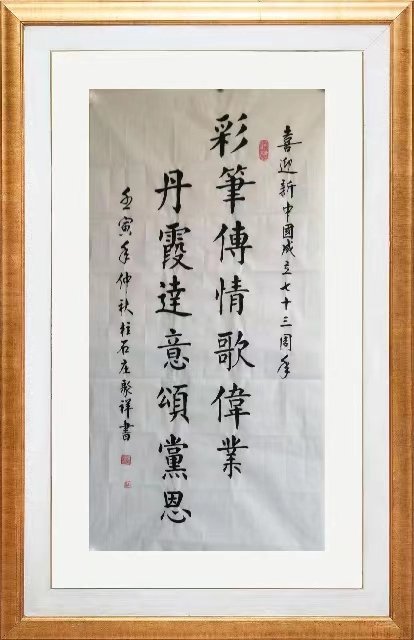 喜迎新中國成立七十三周年
彩筆傳情歌偉業
丹霞達意頌黨恩
壬寅年仲秋柱石左聚祥書